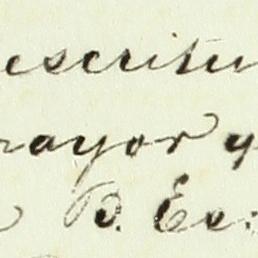 escritu
rayor q
B. Ee: